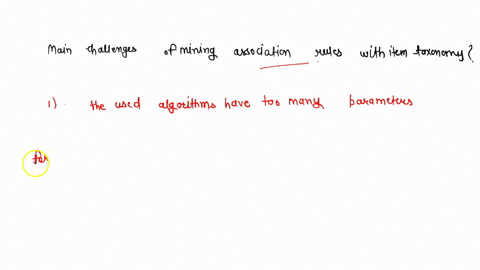 Main challenges of mining association rules with item taxonomy?
1). the used algorithms have too many parameters
for